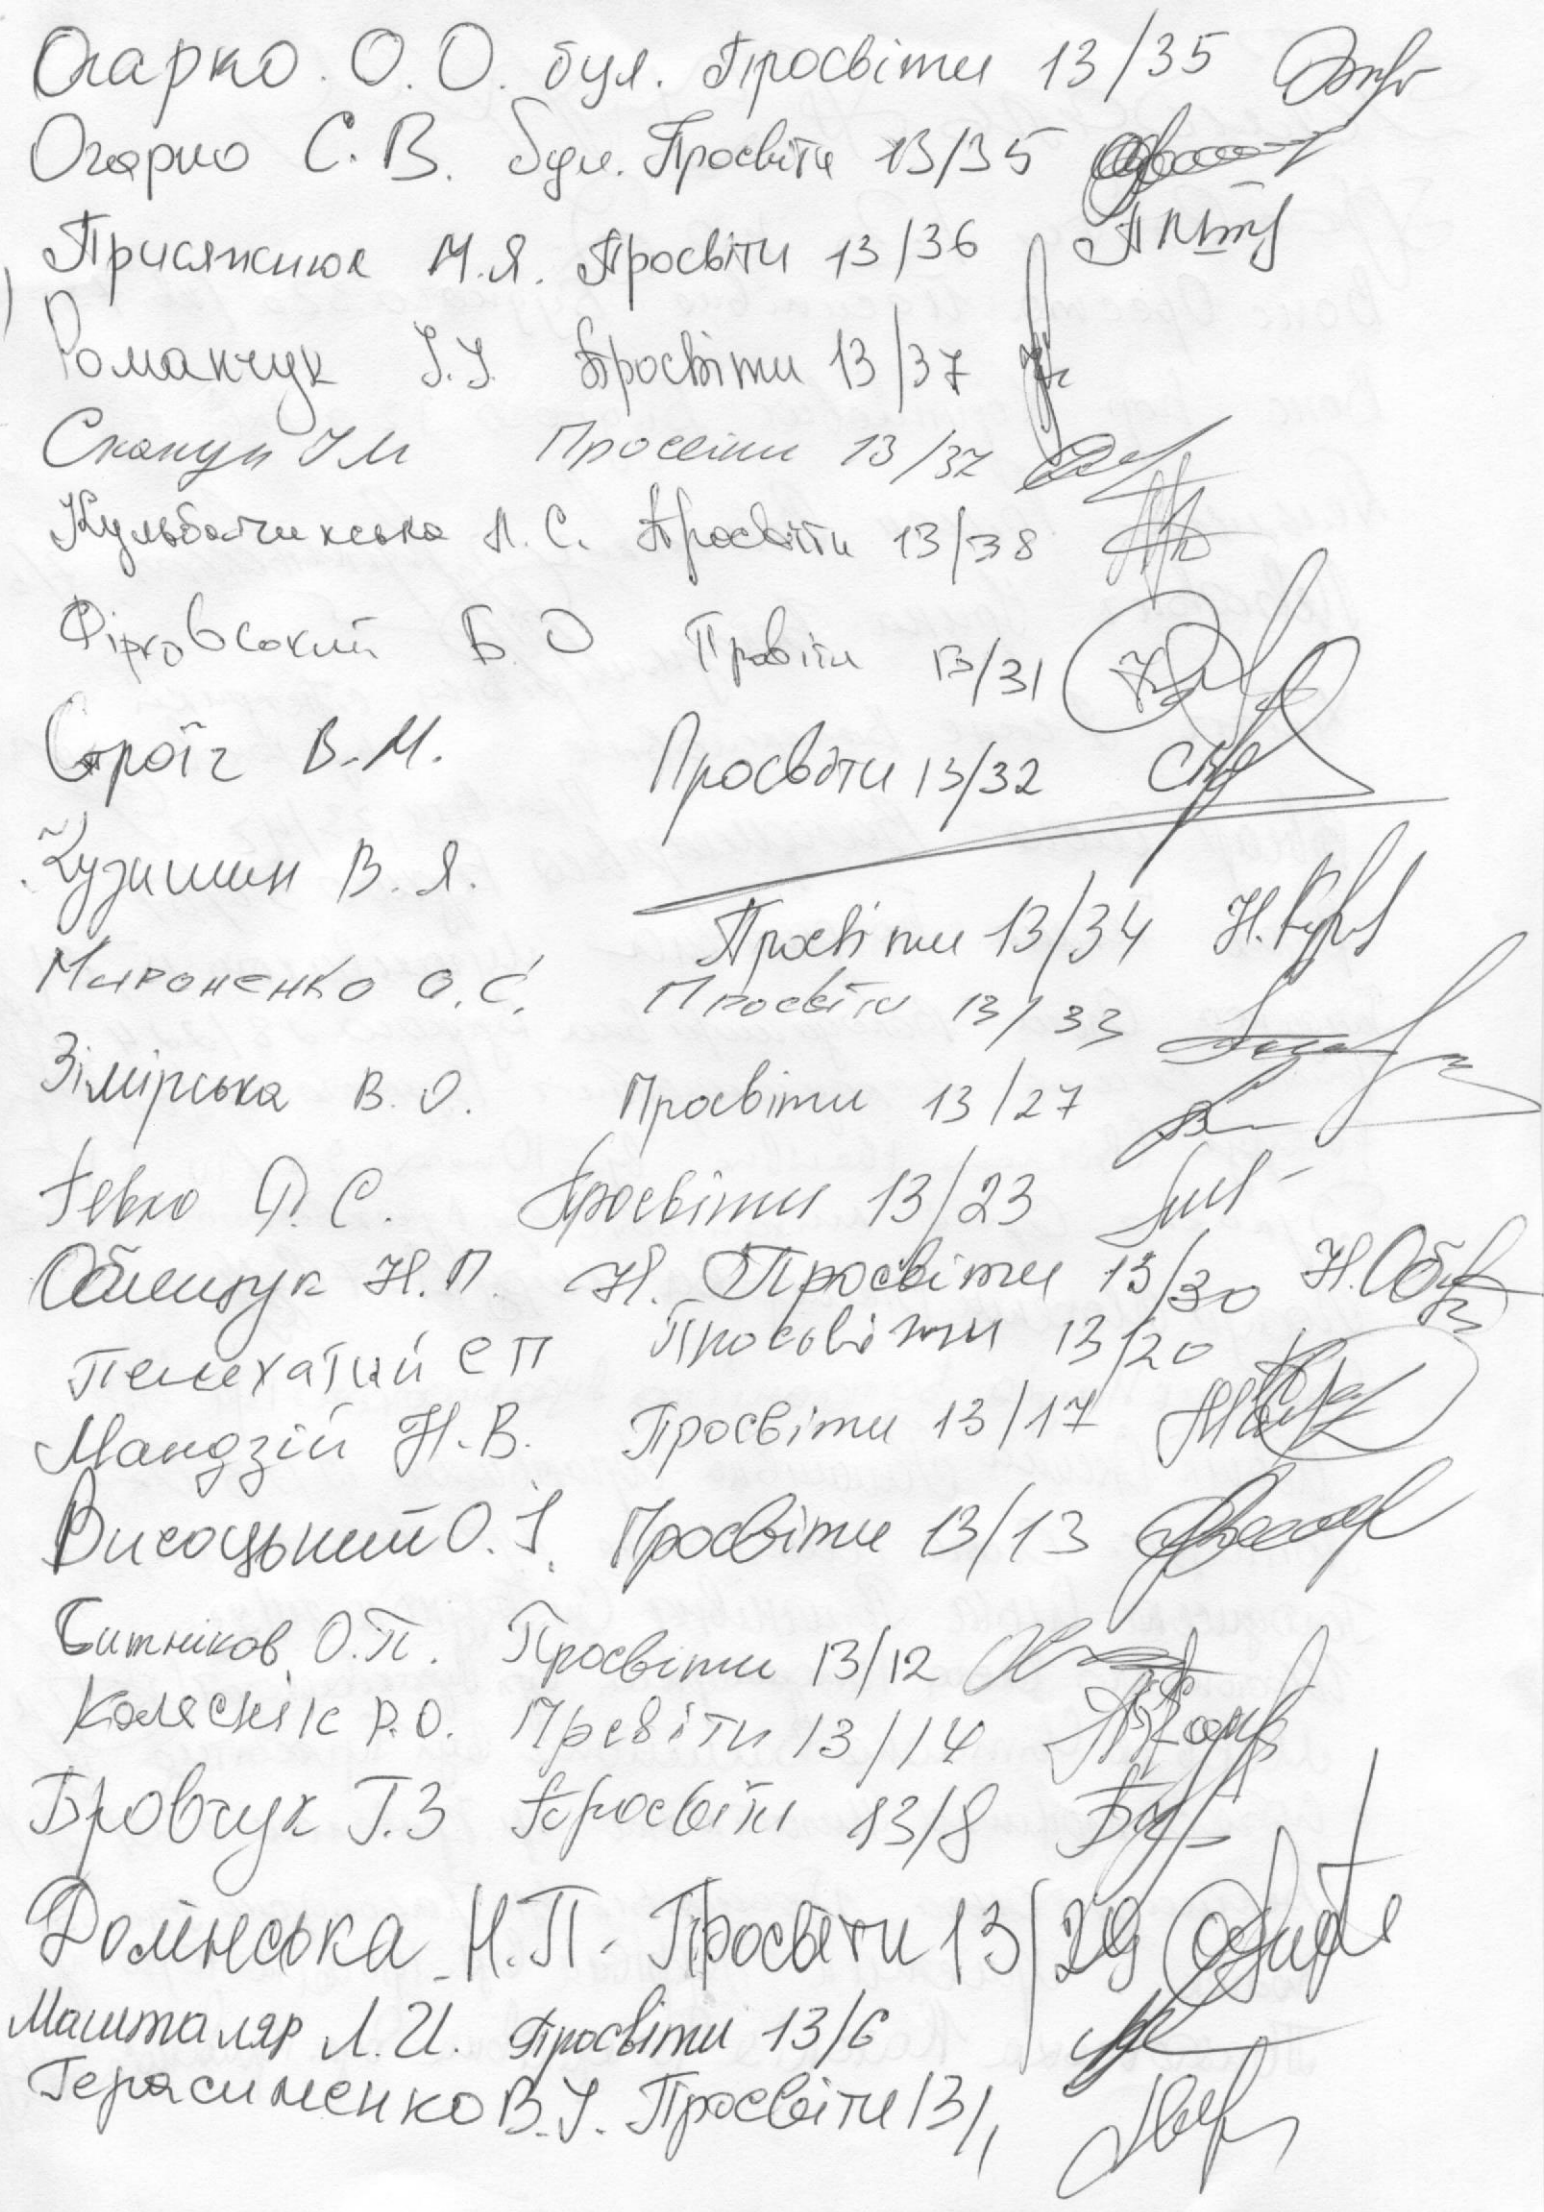 Огарко О.О. бул. Просвіти 13/35
Огарко С.В. бул. Просвіти 13/35
Присяжнюк М.Я. Просвіти 13/36
Романчук І.І. Просвіти 13/37
Скакун І М Просвіти 13/37
Кульбачинська Л.С. Просвіти 13/38
Фірковський Б.О Провіти 13/31
Строїч В.М. Просвіти 13/32
Кузишин В.Я. Просвіти 13/34
Мироненко О.С. Просвіти 13/33
Зімірська В.О. Просвіти 13/27
Просвіти 13/23
Н.П. Н. Просвіти 13/30
Пелехатий Є П Просвіти 13/20
Мандзій Н.В. Просвіти 13/17
Висоцький О.І. Просвіти 13/13
Ситніков О.П. Просвіти 13/12
Коляснік Р.О. Превіти 13/14
Бровчук Г.З Просвіти 13/8
Долінська Н.П. Просвіти 13/29
Машталяр Л.И. Просвіти 13/6
Герасименко В.І. Просвіти 13/1